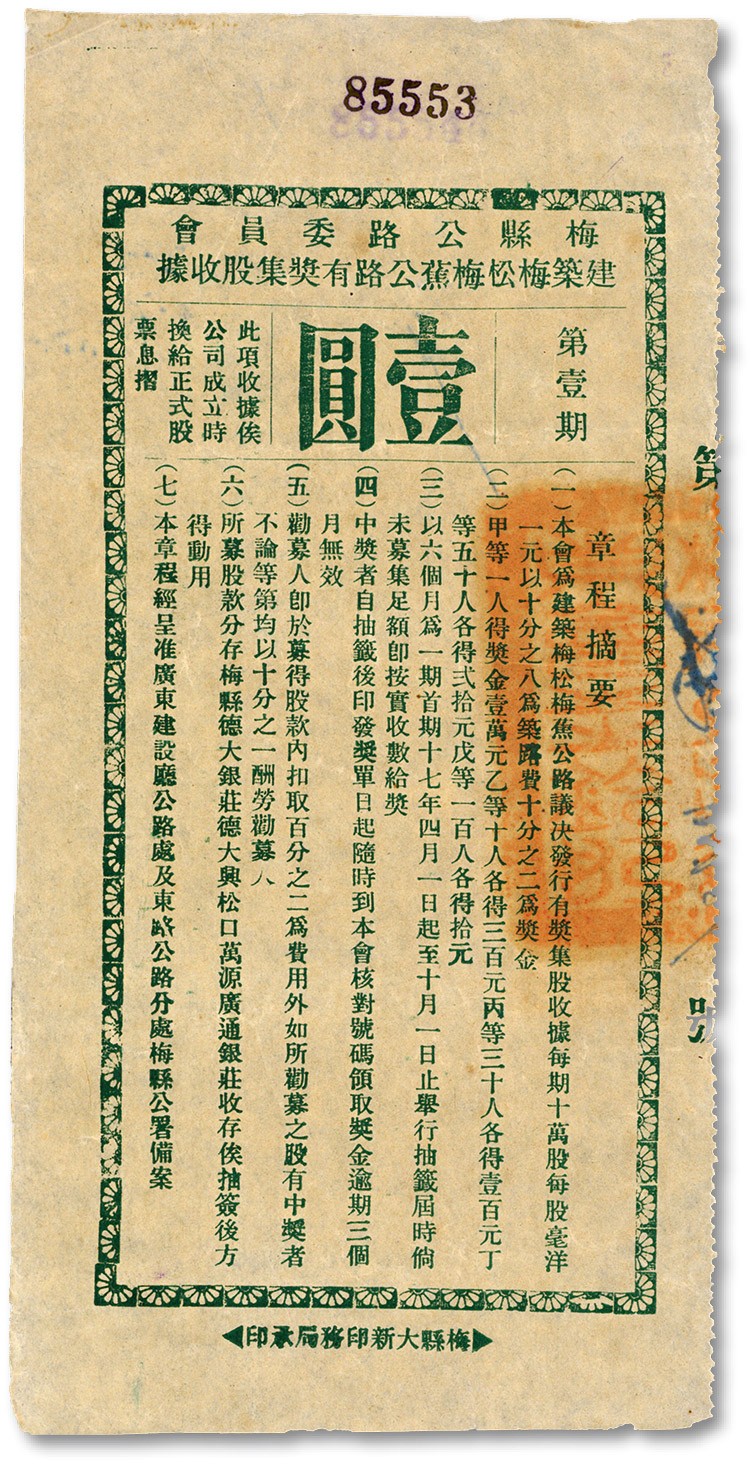 85553
梅縣公路委員會
建築梅松梅蕉公路有奬集股收據
第壹期
壹圓
此項收據俟
公司成立時
換給正式股
票息摺
章程摘要
(一)本會爲建築梅松梅蕉公路議決發行有奬集股收據每期十萬股每股毫洋
一元以十分之八爲築路費十分之二爲奬金
(二)甲等一人得奬金壹萬元乙等十人各得三百元丙等三十人各得壹百元丁
等五十人各得弍拾元戊等一百人各得拾元
(三)以六個月爲一期首期十七年四月一日起至十月一日止舉行抽籤屆時倘
未募集足額卽按實收數給奬
(四)中奬者自抽籤後印發奬單日起隨時到本會核對號碼領取奬金逾期三個
月無效
(五)勸募人卽於募得股款內扣取百分之二爲費用外如所勸募之股有中奬者
不論等第均以十分之一酬勞勸募人
(六)所募股款分存梅縣德大銀莊德大興松口萬源廣通銀莊收存俟抽簽後方
得動用
(七)本章程經呈准廣東建設廳公路處及東路公路分處梅縣公署備案
梅縣大新印務局承印